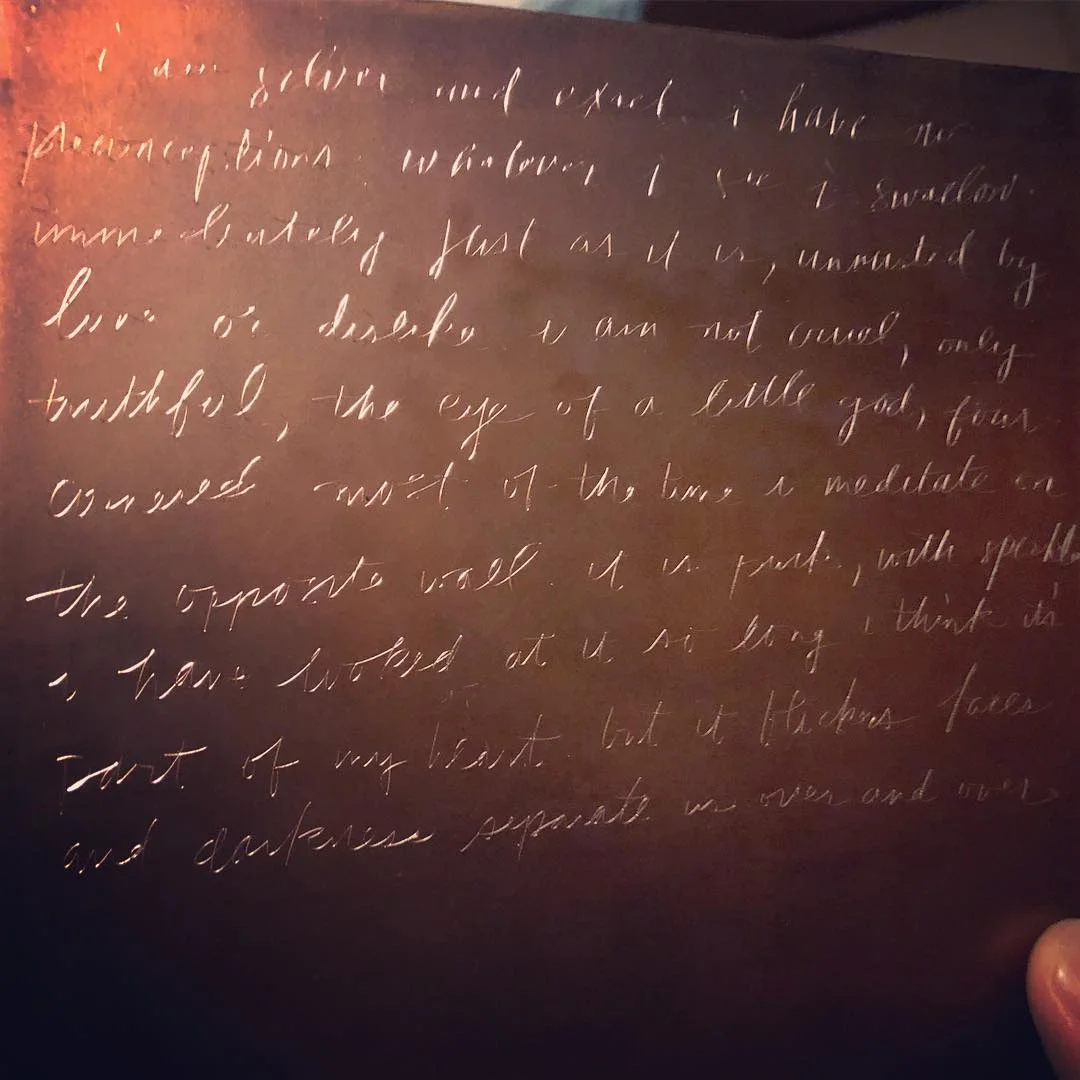 i am silver and exact. i have no
preconceptions. whatever i see i swallow
immediately just as it is, unmisted by
love or dislike i am not cruel, only
truthful, the eye of a little god, four
cornered most of the time i meditate on
the opposite wall. it is pink, with speckles
i have looked at it so long i think it's
part of my heart. but it flickers faces
and darkness separate us over and over